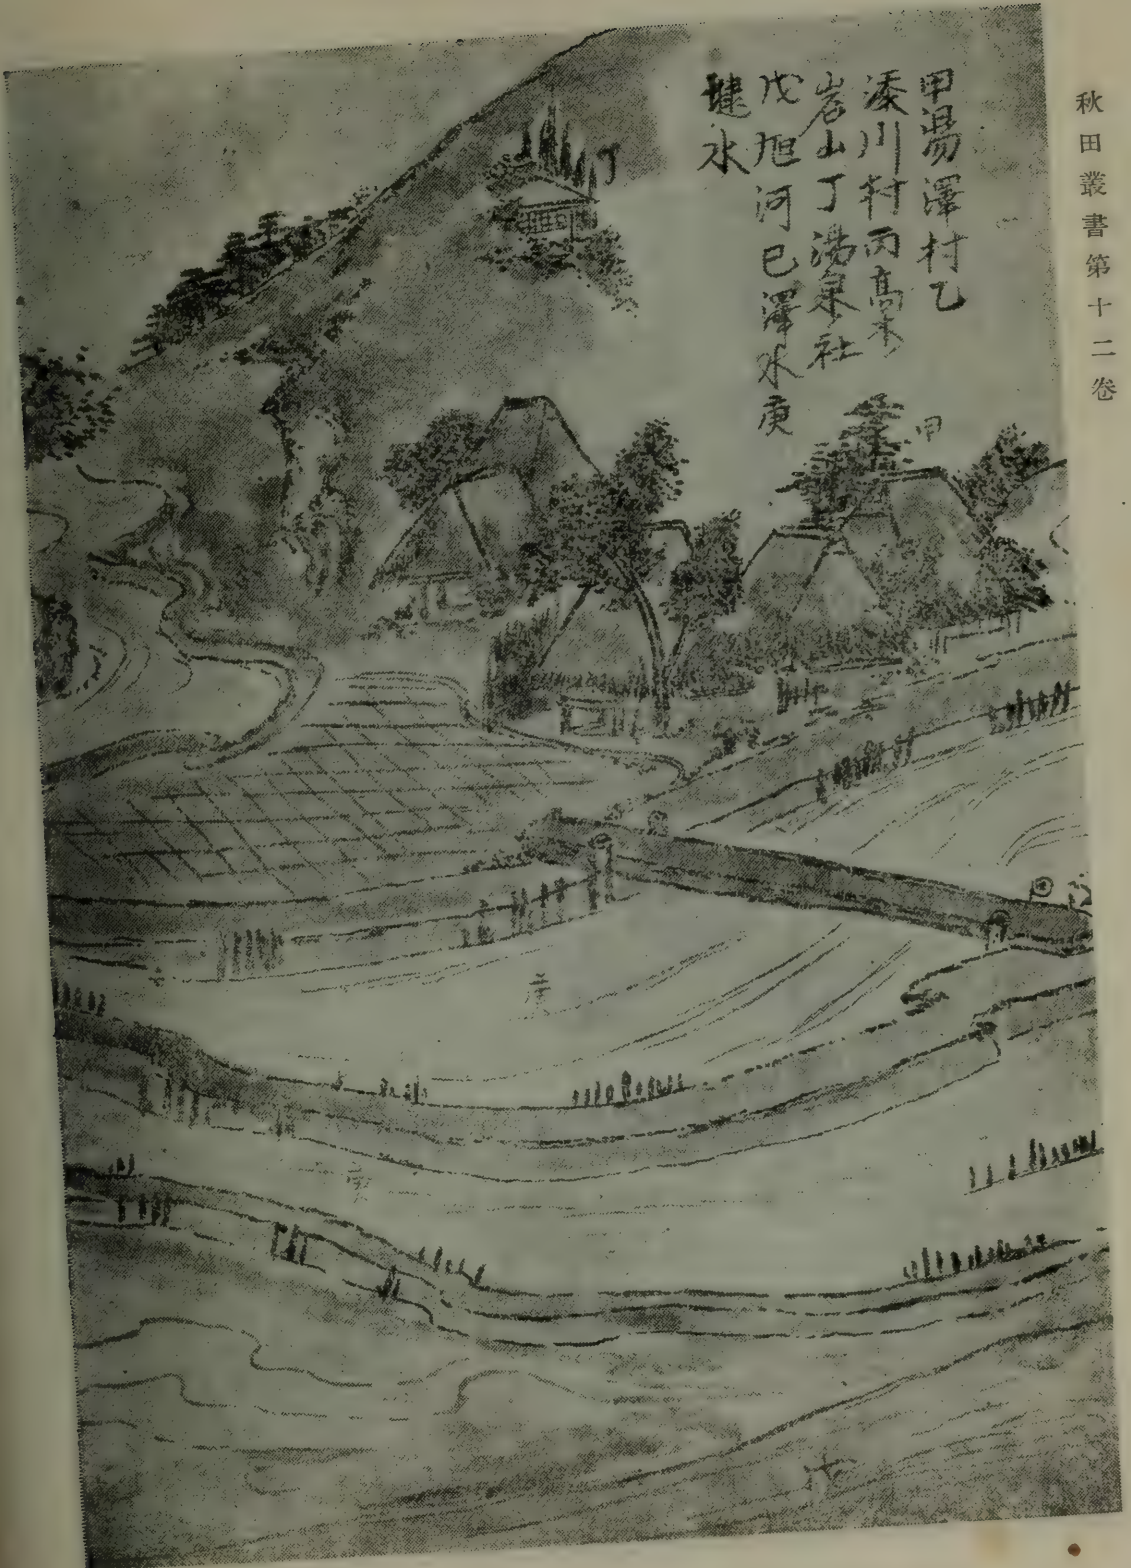 秋田叢書第十二卷
甲湯澤村乙
湊川村丙高
岩山丁湯泉社
戊旭河己澤水庚
水
丁
甲